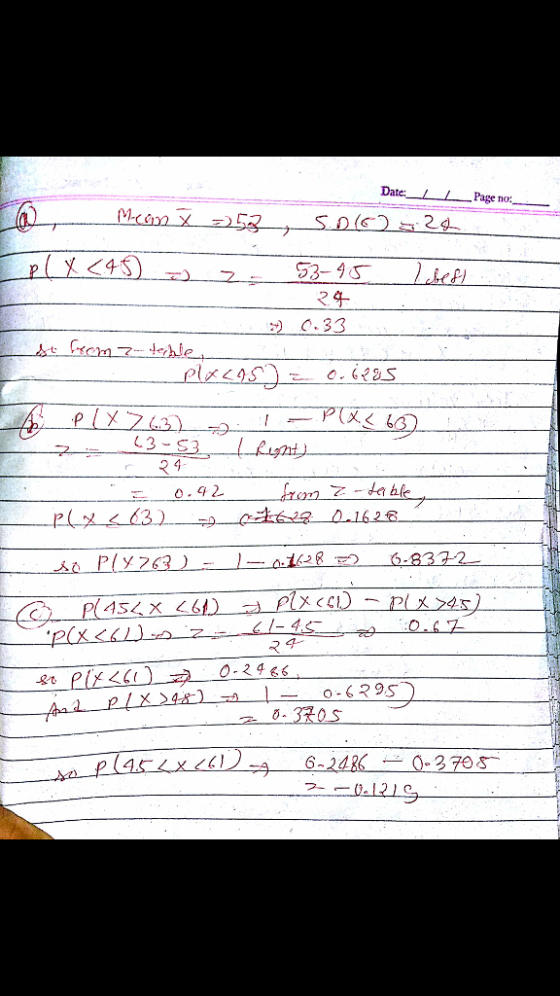 Date: / / Page no:
(a), Mean x̄ => 53, S.D(σ) = 24
P(X < 45) => z = 53-45 / 24 (left
=> 0.33
so from z-table,
P(X<45) = 0.6295
(b) P(X > 63) => 1 - P(X ≤ 63)
z = 63-53 / 24 (Right)
= 0.42 from z-table,
P(X ≤ 63) => 0.1628
so P(X>63) = 1 - 0.1628 => 0.8372
(c) P(45<X<61) => P(X<61) - P(X>45)
P(X<61) => z = 61-45 / 24 => 0.67
so P(X<61) => 0.2486,
And P(X>48) => 1 - 0.6295)
= 0.3705
so P(45<X<61) => 0.2486 - 0.3705
= -0.1219